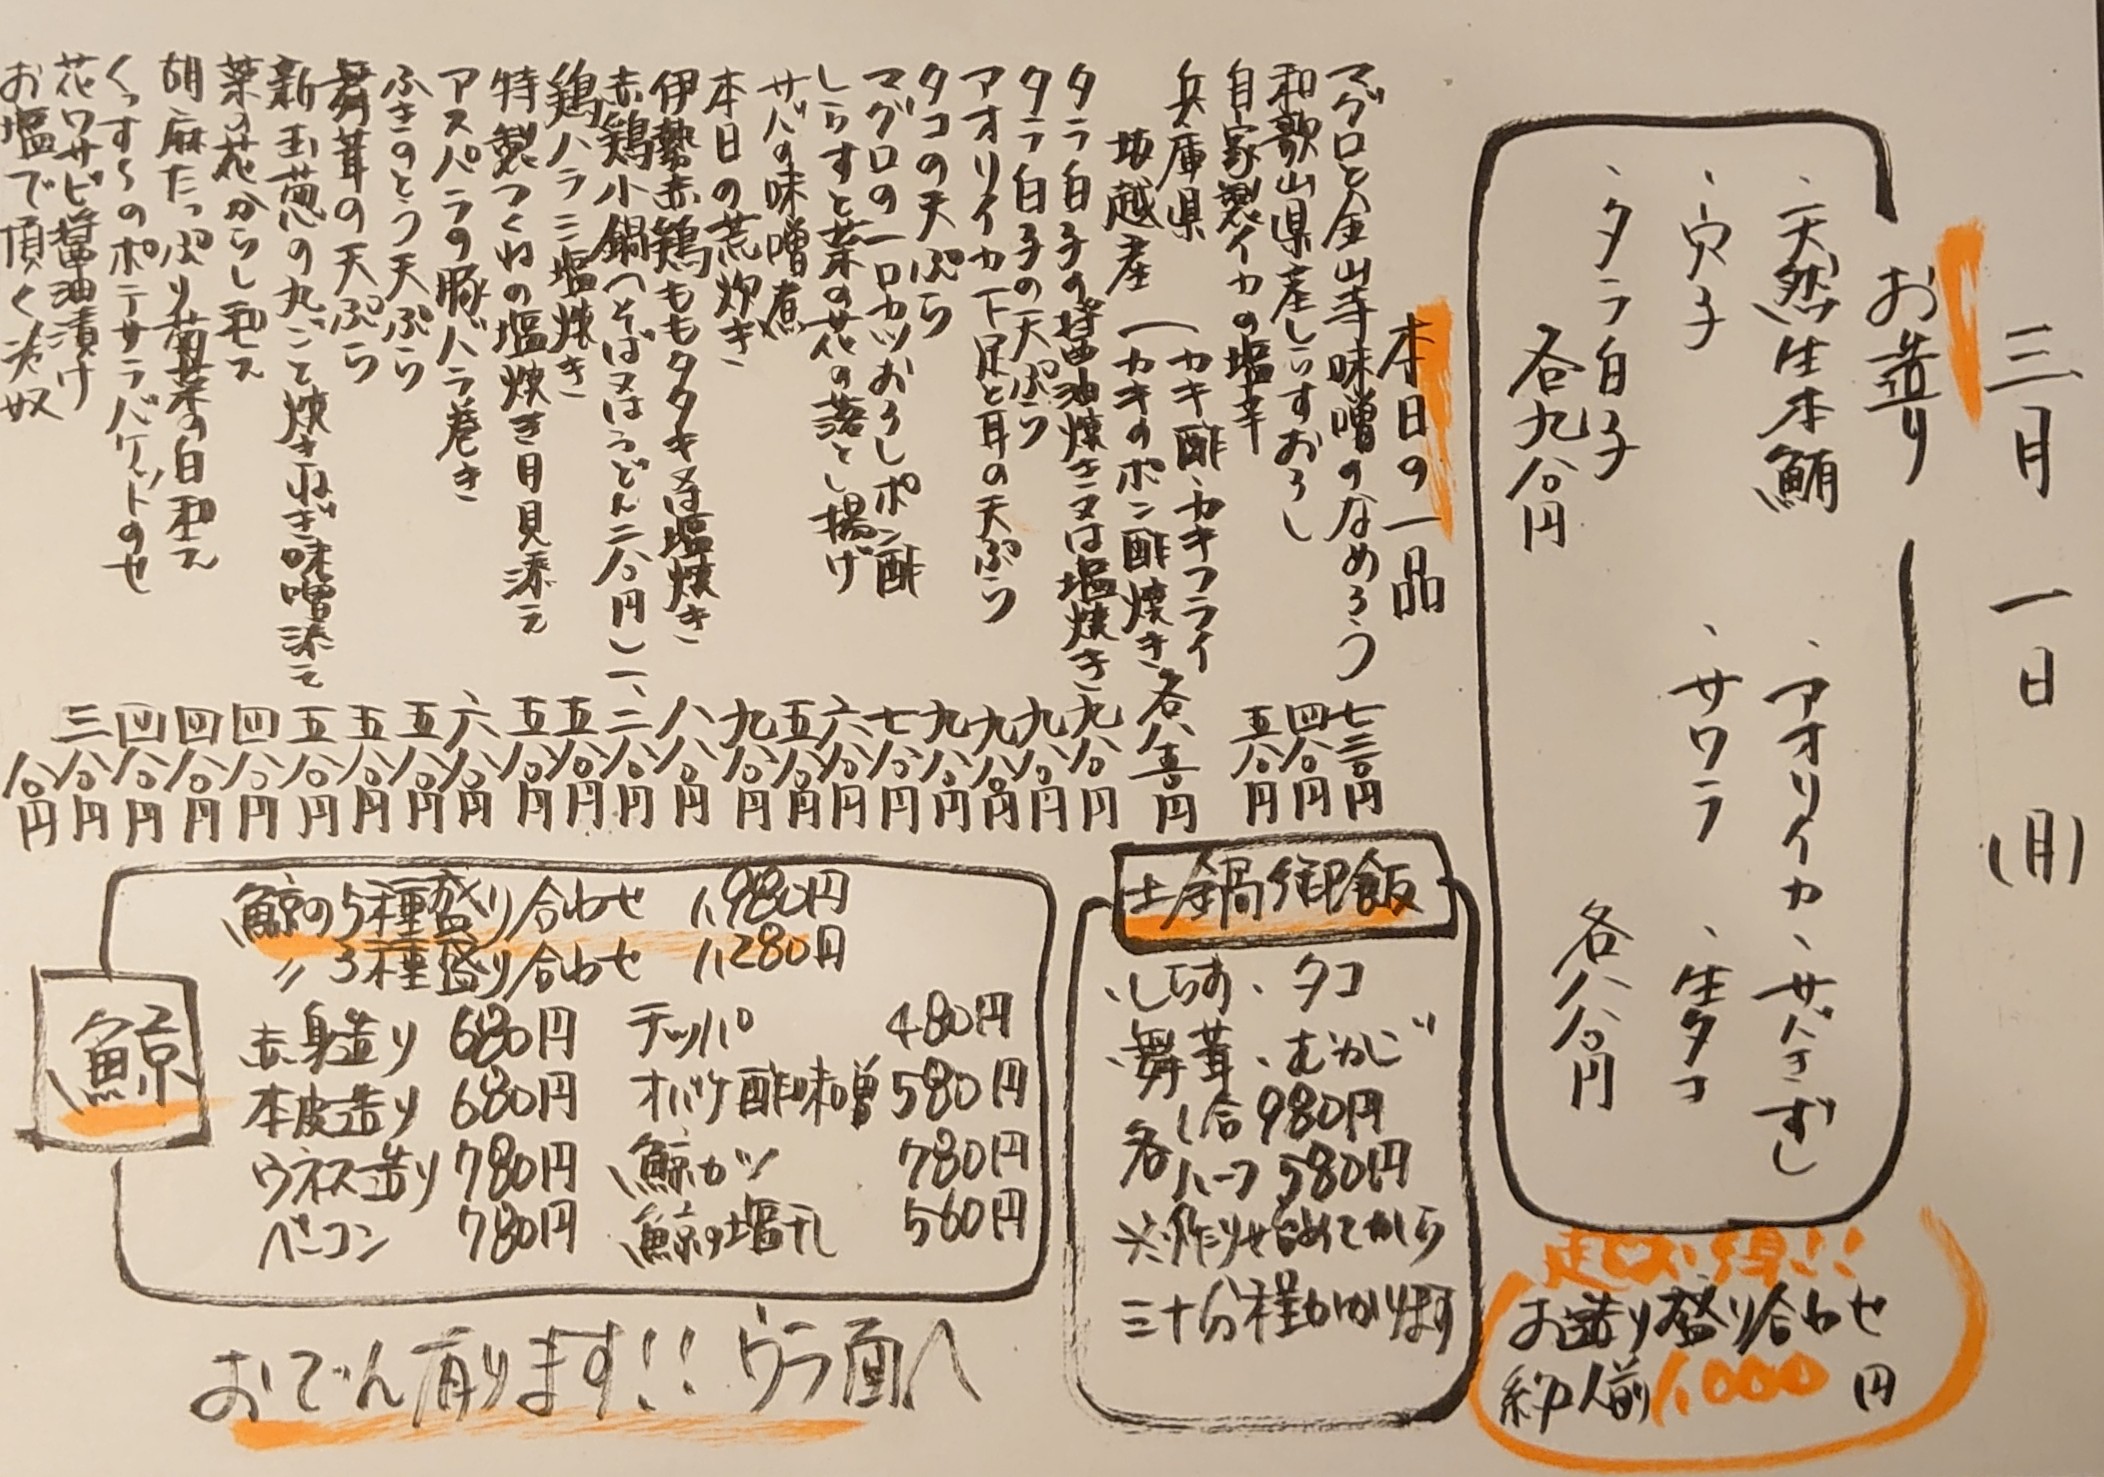 三月一日(月)
お造り
、天然生本鮪
、アオリイカ、サバきずし
、穴子
、サワラ、生タコ
、タラ白子
各九八〇円
各八八〇円
超お得!!
お造り盛り合わせ
約一人前1,000円
本日の一品
マグロと金山寺味噌のなめろう 七三〇円
和歌山県産しらすおろし 四八〇円
自家製イカの塩辛 五八〇円
兵庫県坂越産
(カキ酢、カキフライ
(カキのポン酢焼き 各八五〇円
タラ白子の醤油焼き又は塩焼き 九八〇円
タラ白子の天ぷら 九八〇円
アオリイカ下足と耳の天ぷら 九八〇円
タコの天ぷら 九八〇円
マグロの一口カツおろしポン酢 七八〇円
しらすと菜の花の落とし揚げ 六八〇円
サバの味噌煮 五八〇円
本日の荒炊き 九八〇円
伊勢赤鶏ももタタキ又は塩焼き 八八〇円
赤鶏小鍋(そば又はうどん二八〇円) 一、二八〇円
鶏ハラミ塩焼き 五八〇円
特製つくねの塩焼き月見添え 五八〇円
アスパラの豚バラ巻き 六八〇円
ふきのとう天ぷら 五八〇円
舞茸の天ぷら 五八〇円
新玉葱の丸ごと焼きねぎ味噌添え 五八〇円
菜の花からし和え 四八〇円
胡麻たっぷり菊菜の白和え 四八〇円
くっす〜のポテサラバゲットのせ 四八〇円
花ワサビ醤油漬け 三八〇円
お塩で頂く冷奴 八〇円
土鍋御飯
、しらす、タコ
、舞茸、むかご
各
一合 980円
ハーフ 580円
※作り始めてから
三十分程かかります
鯨
鯨の5種盛り合わせ 1,980円
〃 3種盛り合わせ 1,280円
赤身造り 680円 テッパ 480円
本皮造り 680円 オバケ酢味噌 580円
ウネス造り 780円 鯨カツ 780円
ベーコン 780円 鯨の塩干し 560円
おでん有ります!! ウラ面へ